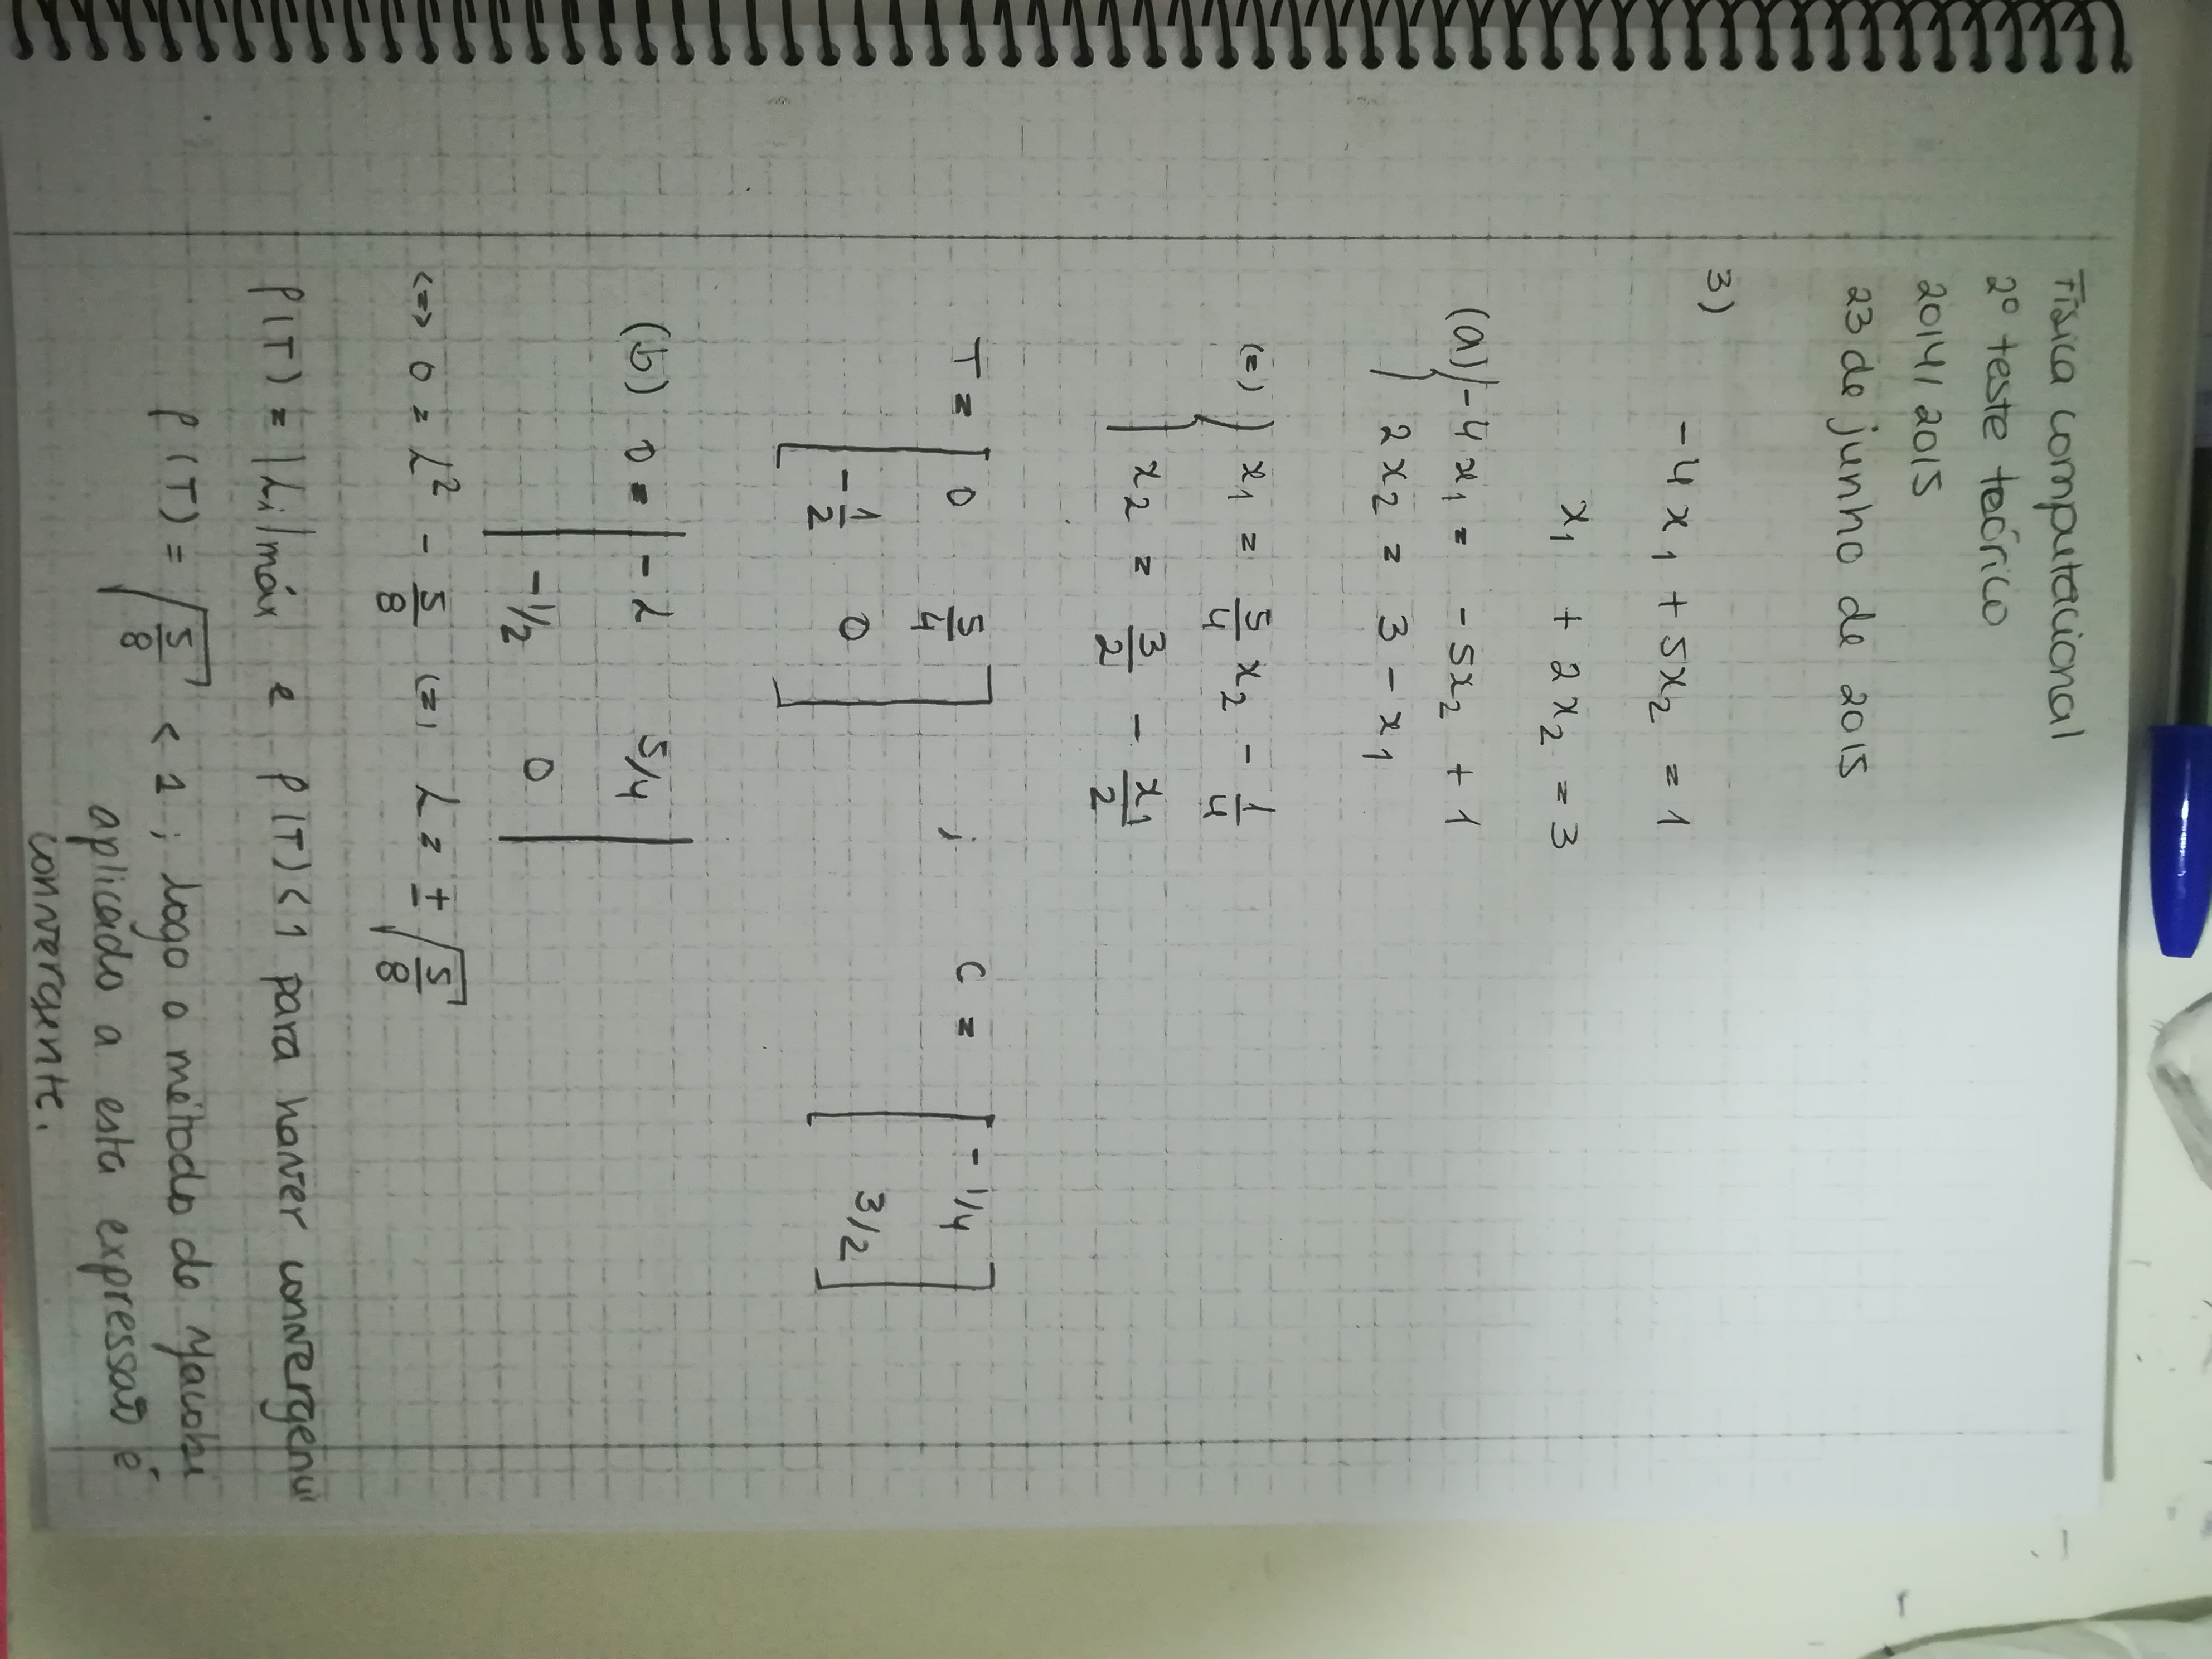 Física computacional
2º teste teórico
2014/2015
23 de junho de 2015
3)
-4x₁ + 5x₂ = 1
x₁ + 2x₂ = 3
(a) { -4x₁ = -5x₂ + 1
2x₂ = 3 - x₁
(=) { x₁ = 5/4 x₂ - 1/4
x₂ = 3/2 - x₁/2
T = [ 0 5/4 ; -1/2 0 ] ; C = [ -1/4 ; 3/2 ]
(b) 0 = | -λ 5/4 ; -1/2 0 |
<=> 0 = λ² - 5/8 (=) λ = ± √(5/8)
ρ(T) = |λi|máx e ρ(T) < 1 para haver convergenci
ρ(T) = √(5/8) < 1 ; logo o método de Jacobi
aplicado a esta expressão é
convergente.